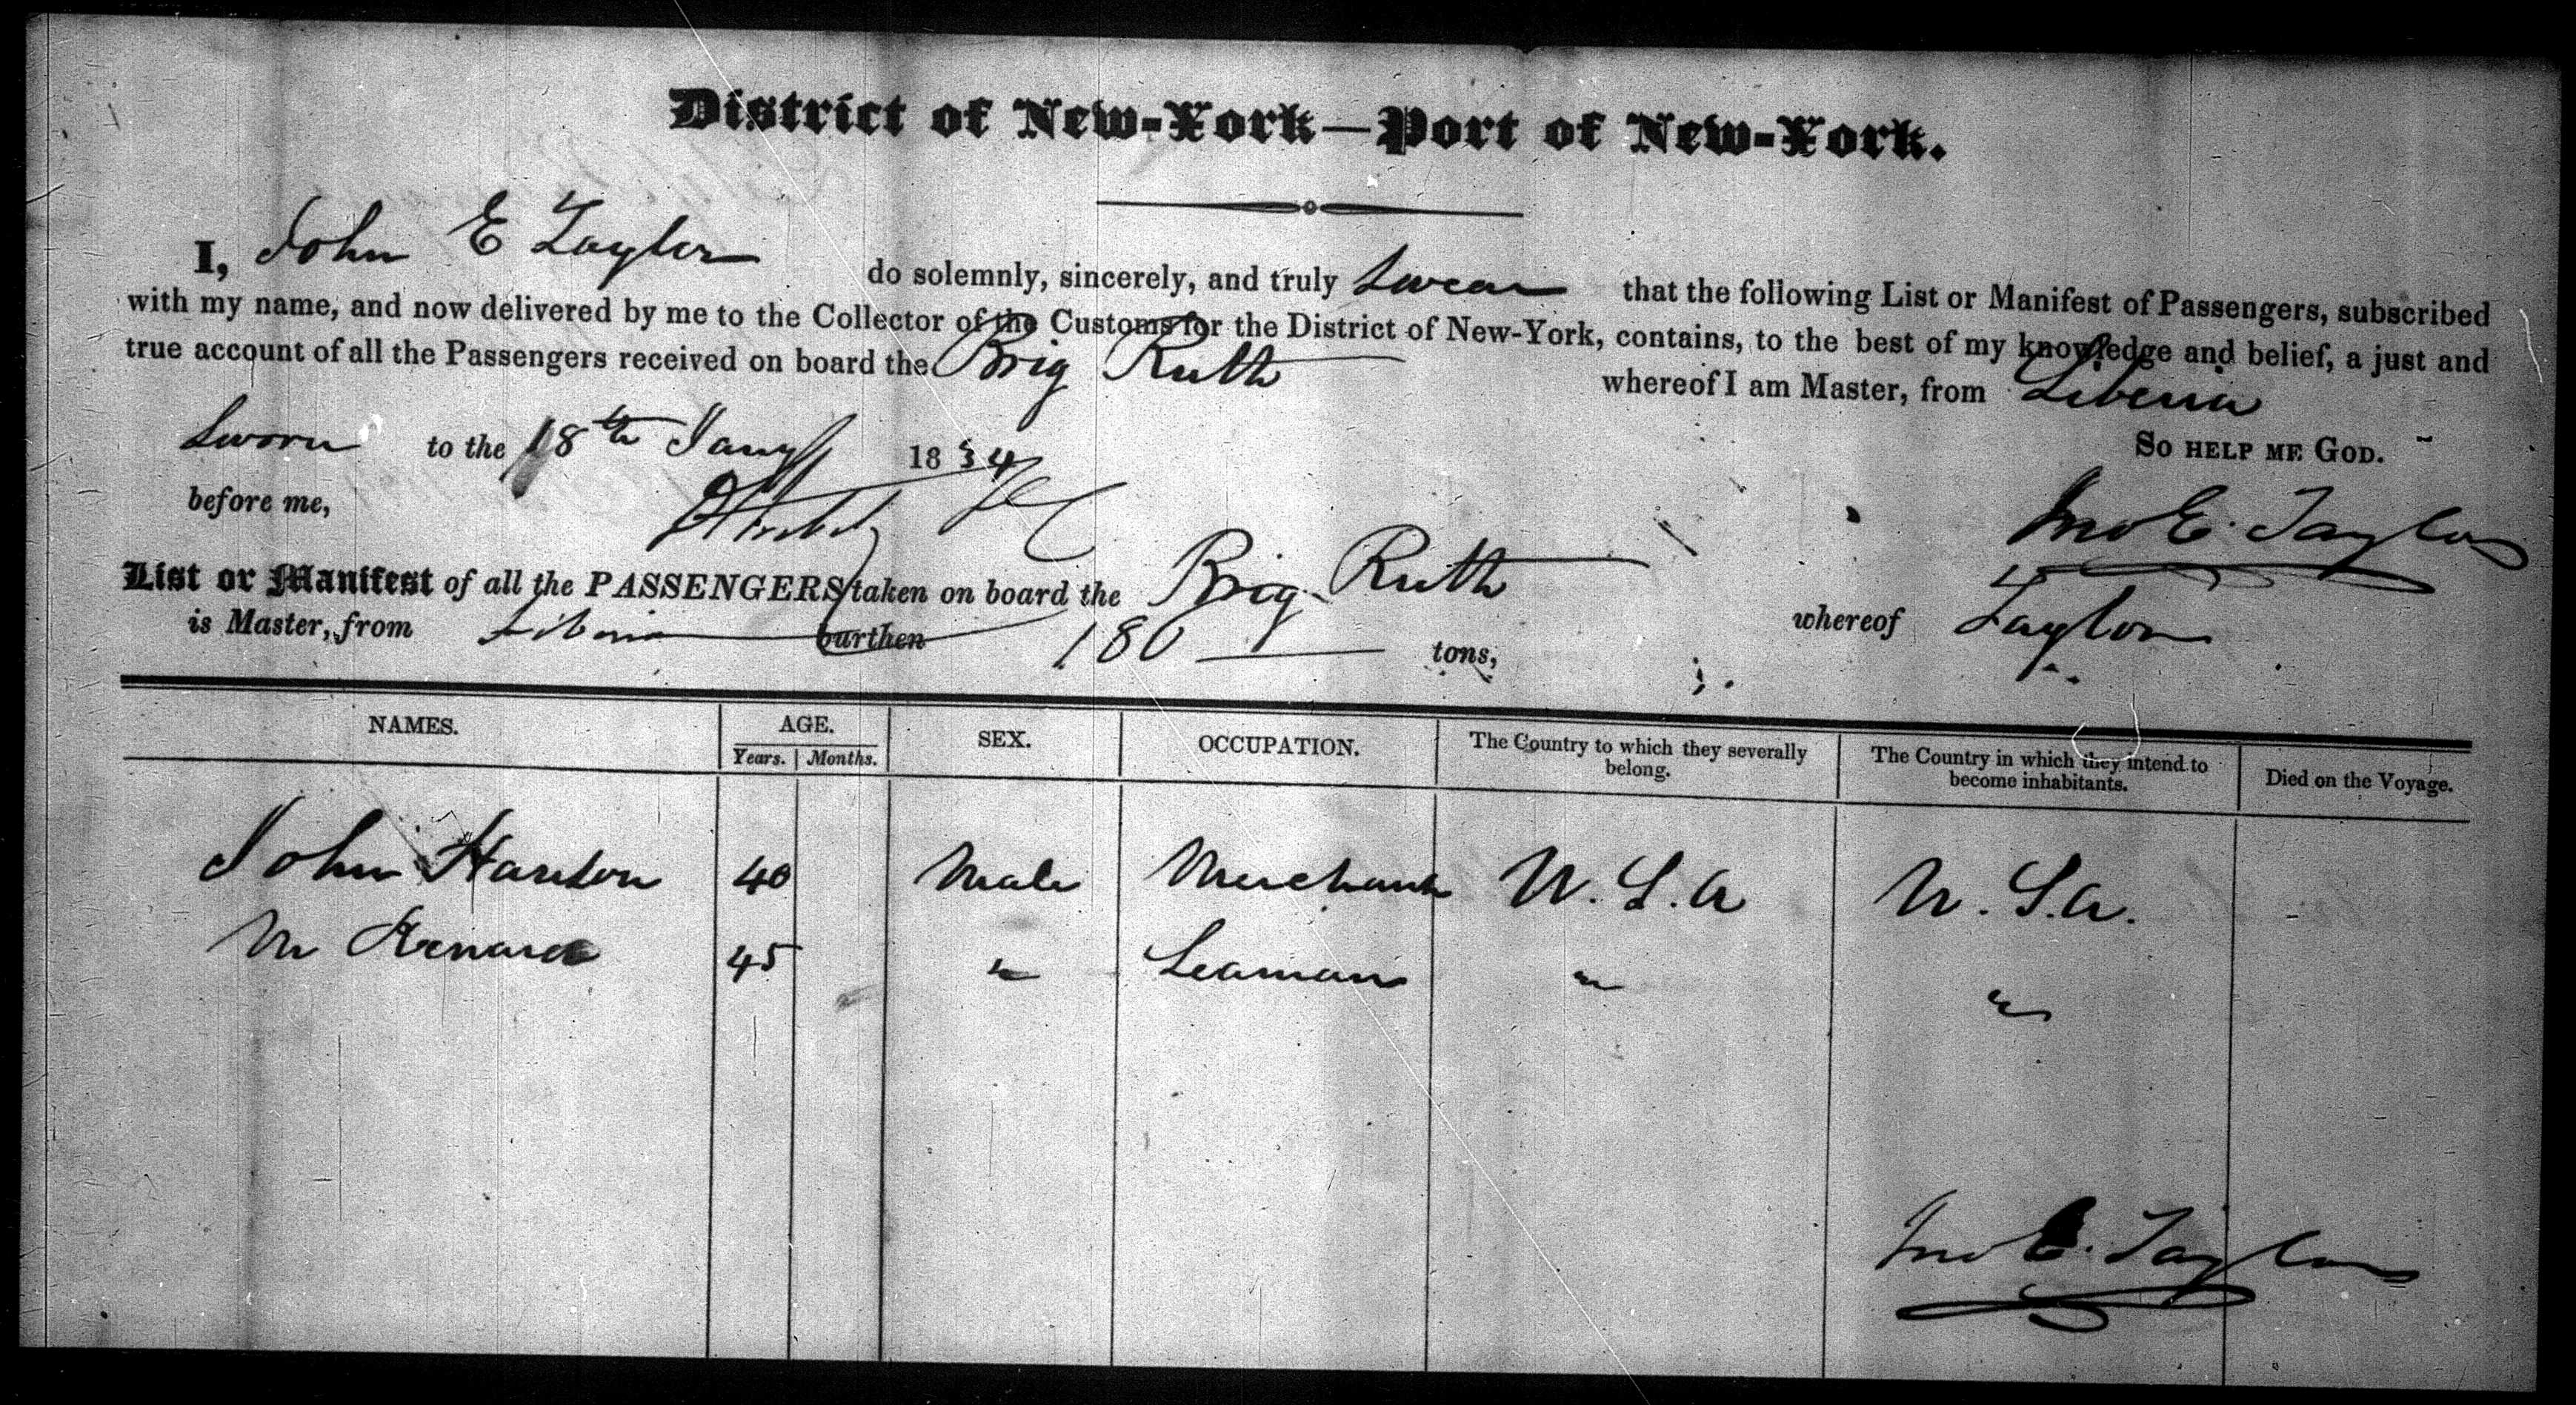 District of New-York—Port of New-York.
I, John E Taylor do solemnly, sincerely, and truly Swear that the following List or Manifest of Passengers, subscribed
with my name, and now delivered by me to the Collector of the Customs for the District of New-York, contains, to the best of my knowledge and belief, a just and
true account of all the Passengers received on board the Brig Ruth whereof I am Master, from Liberia
Sworn to the 18th Jany 1834
So HELP ME GOD.
before me,
Jno E. Taylor
List or Manifest of all the PASSENGERS taken on board the Brig Ruth whereof Taylor
is Master, from Liberia burthen 180 tons,
NAMES. AGE. SEX. OCCUPATION. The Country to which they severally belong. The Country in which they intend to become inhabitants. Died on the Voyage.
Years. Months.
John Hanson 40 Male Merchant U.S.A U.S.A.
45 " Seaman " "
Jno E. Taylor